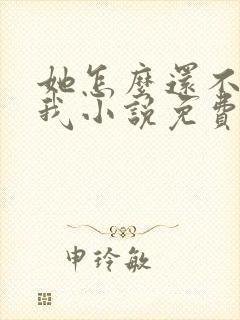 她怎麼還不
我小說免費
申玲敏